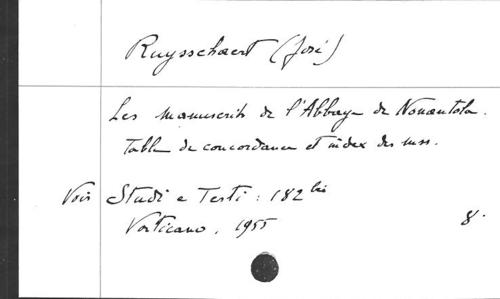 Ruysschaert (José)
Les manuscrits de l'Abbaye de Nonantola.
Table de concordance et index des mss.
Voir Studi e Testi : 182 bis
Vaticano, 1955 8°